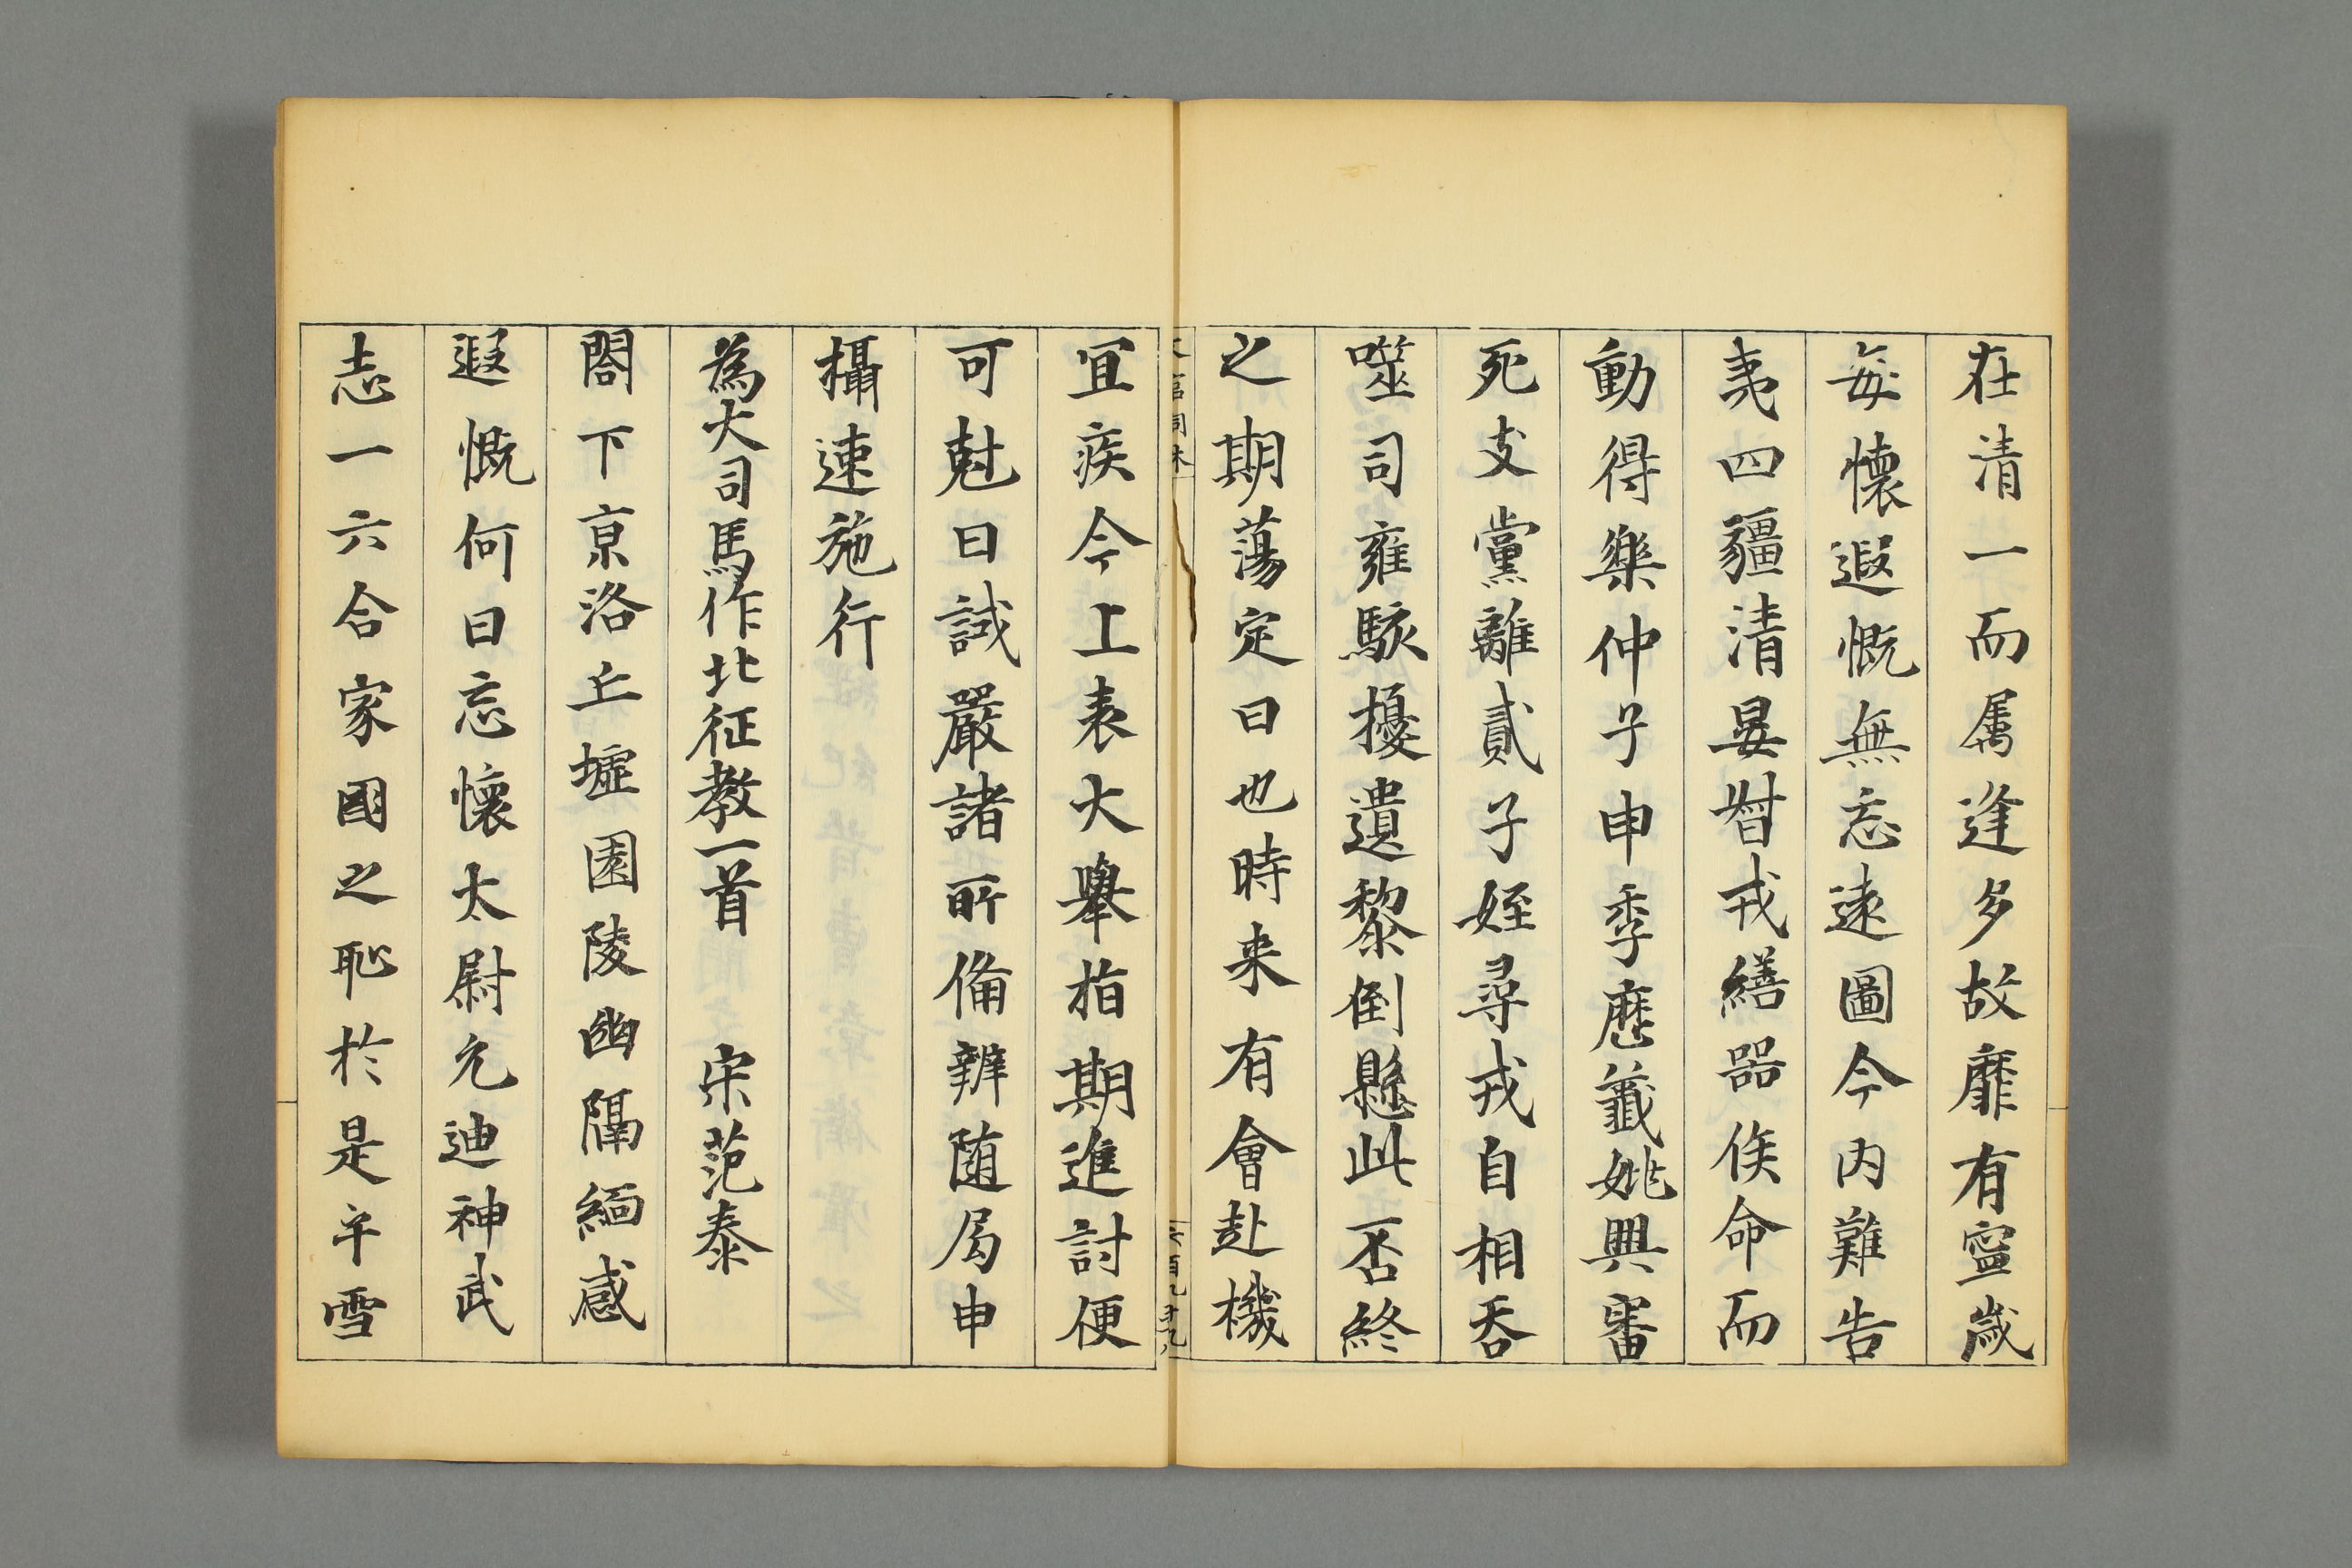 在清一而属逢多故靡有寧歳
每懷遐慨無忘遠圖今内難告
夷四疆清晏甞戎繕器俟命而
動得樂仲子申季歷籖姚興審
死支黨離貳子姪尋戎自相吞
噬司雍駭擾遺黎倒懸此否終
之期蕩定日也時来有會赴機
宜疾今上表大舉指期進討便
可尅日誡嚴諸所俻辨随局申
攝速施行
為大司馬作北征教一首　宋范泰
閤下京洛丘墟園陵幽隔緬感
遐慨何日忘懷太尉允迪神武
志一六合家國之恥於是乎雪